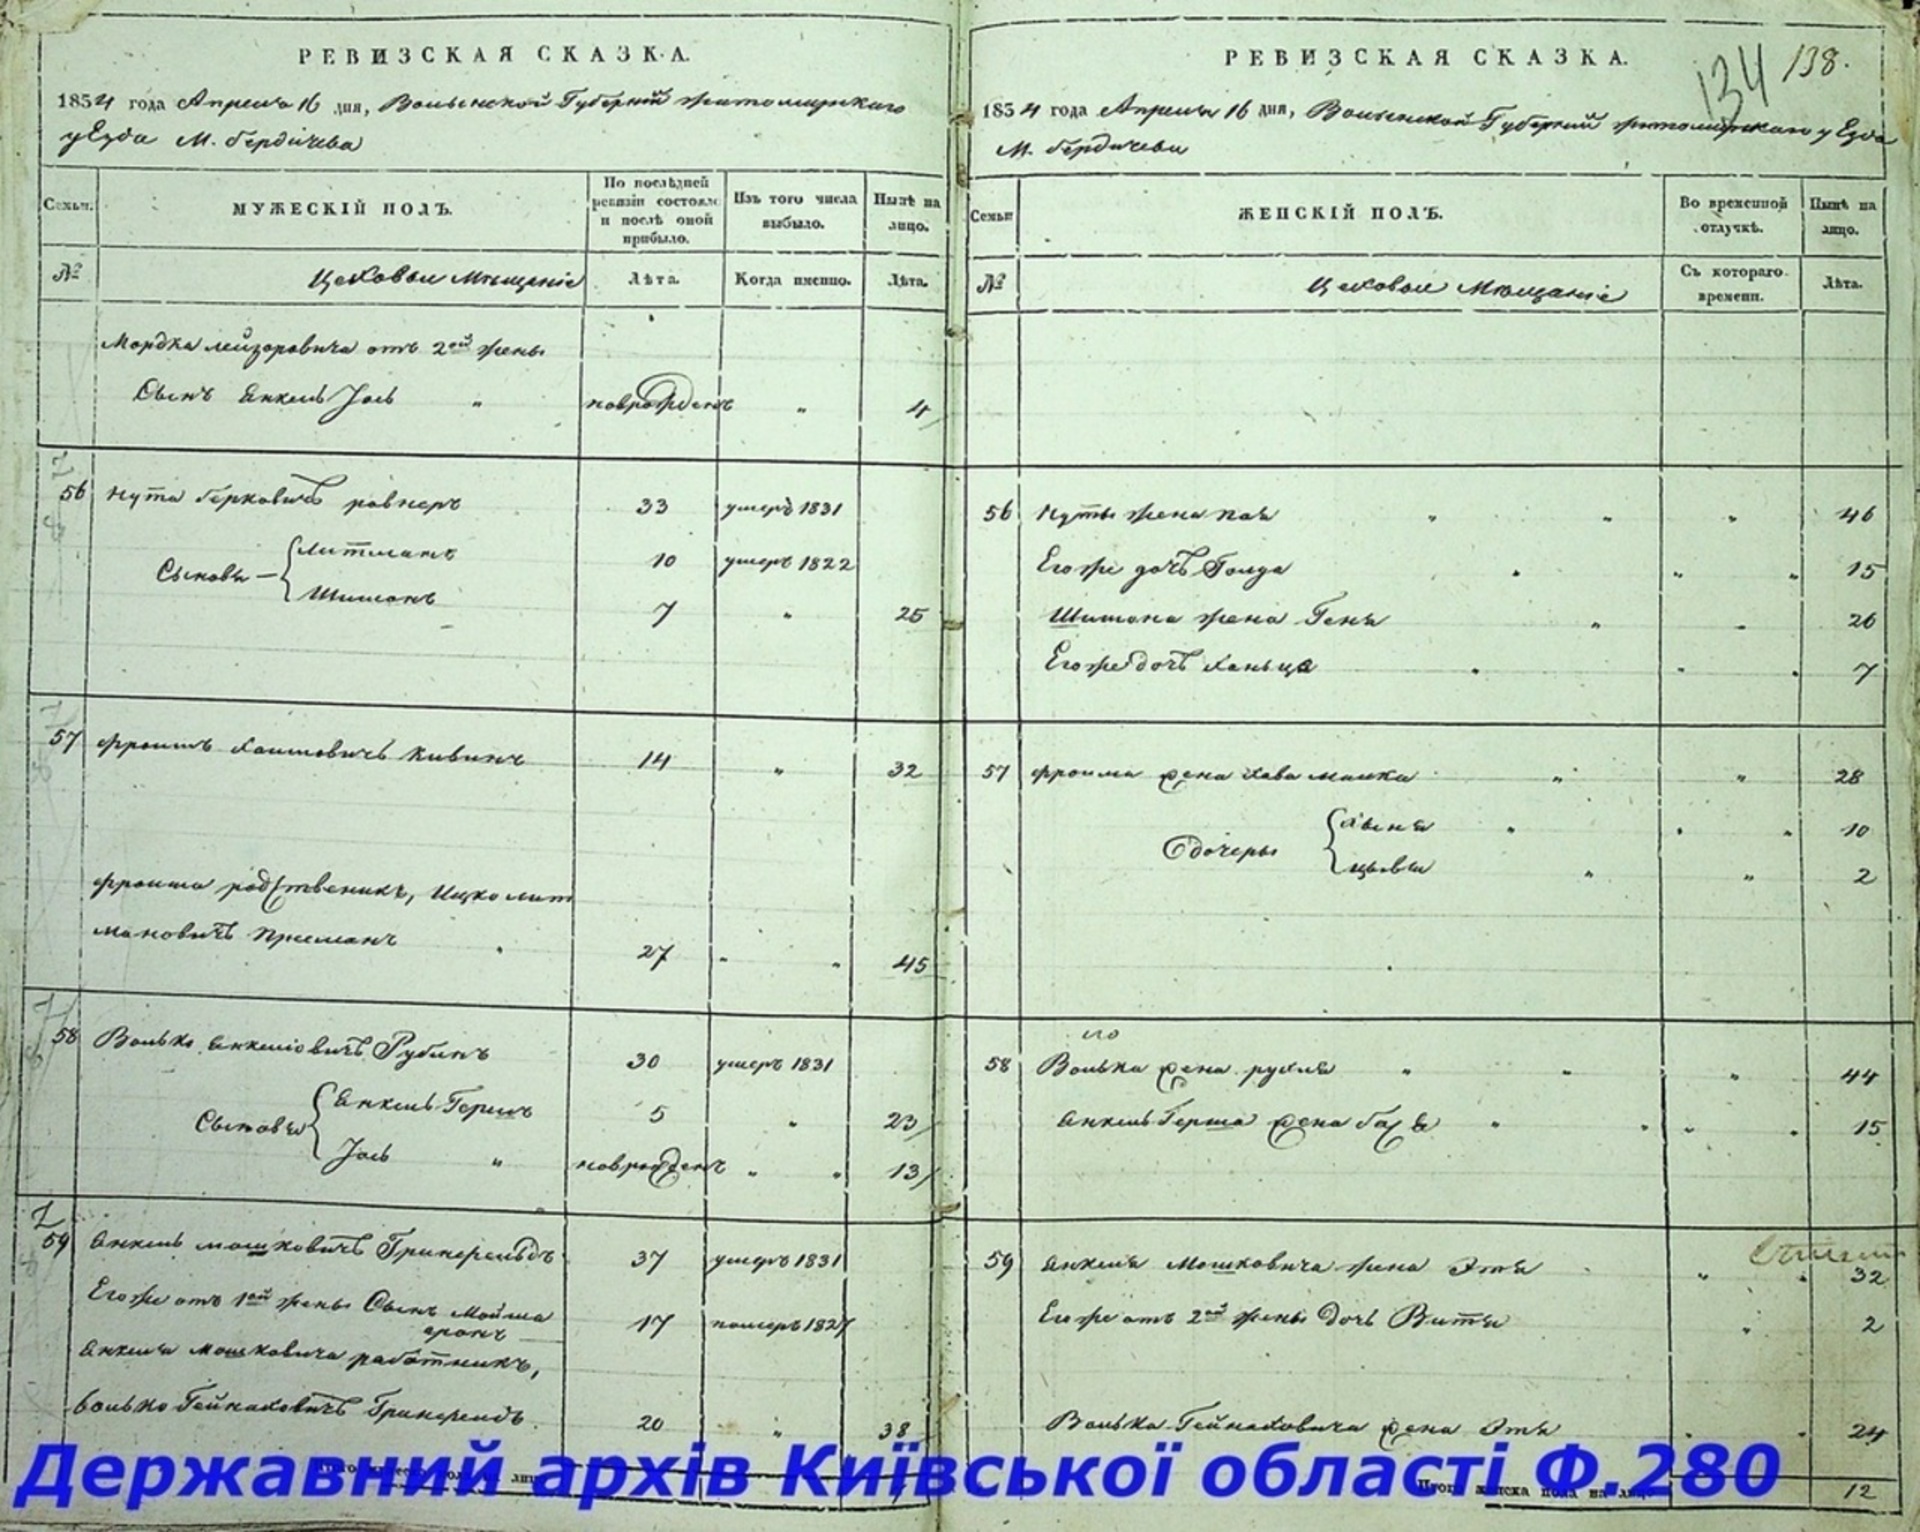 РЕВИЗСКАЯ СКАЗКА.
1854 года Апреля 16 дня, Волынской Губерніи Житомирскаго
уЕзда М. Бердичева
Семьи.
МУЖЕСКІЙ ПОЛЪ.
По послѣдней ревизіи состояло и послѣ оной прибыло.
Изъ того числа выбыло.
Нынѣ на лицо.
№
Цеховыи Мещаніе
Лѣта.
Когда именно.
Лѣта.
Мордка Лейзоровича отъ 2ой жены
Сынъ Янкель Іось " новрожденъ " 4
56 Нута Берковичъ ровнеръ 33 умеръ 1831
Сыновя — Литманъ 10 умеръ 1822
Шимонъ 7 " 25
57 Фроимъ Хаимовичъ Кивинъ 14 " 32
Фроима родственикъ, Ицко Лит
мановичъ 27 " " 45
58 Волько Янкеліовичъ Рубинъ 30 умеръ 1831
Сыновя Янкель Гершъ 5 " 23
Іось " новрожденъ " " 13
59 Янкель Мошковичъ 37 умеръ 1831
Егоже отъ 1ой жены Сынъ Мойша
аронъ 17 померъ 1827
Янкеля Мошковича работникъ,
Волько Гейнаховичъ 20 " 38
РЕВИЗСКАЯ СКАЗКА.
134 138.
1854 года Апреля 16 дня, Волынской Губерніи Житомирскаго уЕзда
М. Бердичева
Семьи
ЖЕНСКІЙ ПОЛЪ.
Во временной отлучкѣ.
Нынѣ на лицо.
№
Цеховыи Мещаніе
Съ котораго времени.
Лѣта.
56 Нуты жена Поя " " " 46
Егоже дочь Голда " " " 15
Шимона жена Геня " " 26
Егоже дочь Ханьца " " " 7
57 Фроима жена Хава Малка " " 28
дочеры Хьеня " " " 10
Цывья " " 2
58 Волька жена рухля " " " 44
Янкель Герша жена Бася " " " " 15
59 Янкеля Мошковича жена Этя " " 32
Егоже отъ 2ой жены дочь Витя " 2
Волька Гейнаховича жена Этя " " 24
Итого женска пола на лицо 12
Державний архів Київської області Ф.280